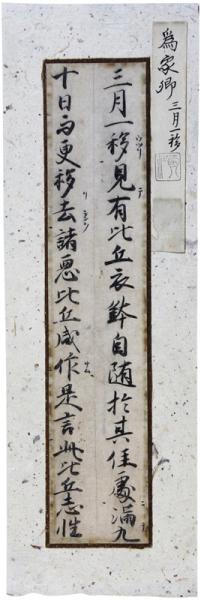 為家卿 三月一移
三月一移見有比丘衣鉢自随於其住處満九
十日而更移去諸悪比丘咸作是言此比丘志性